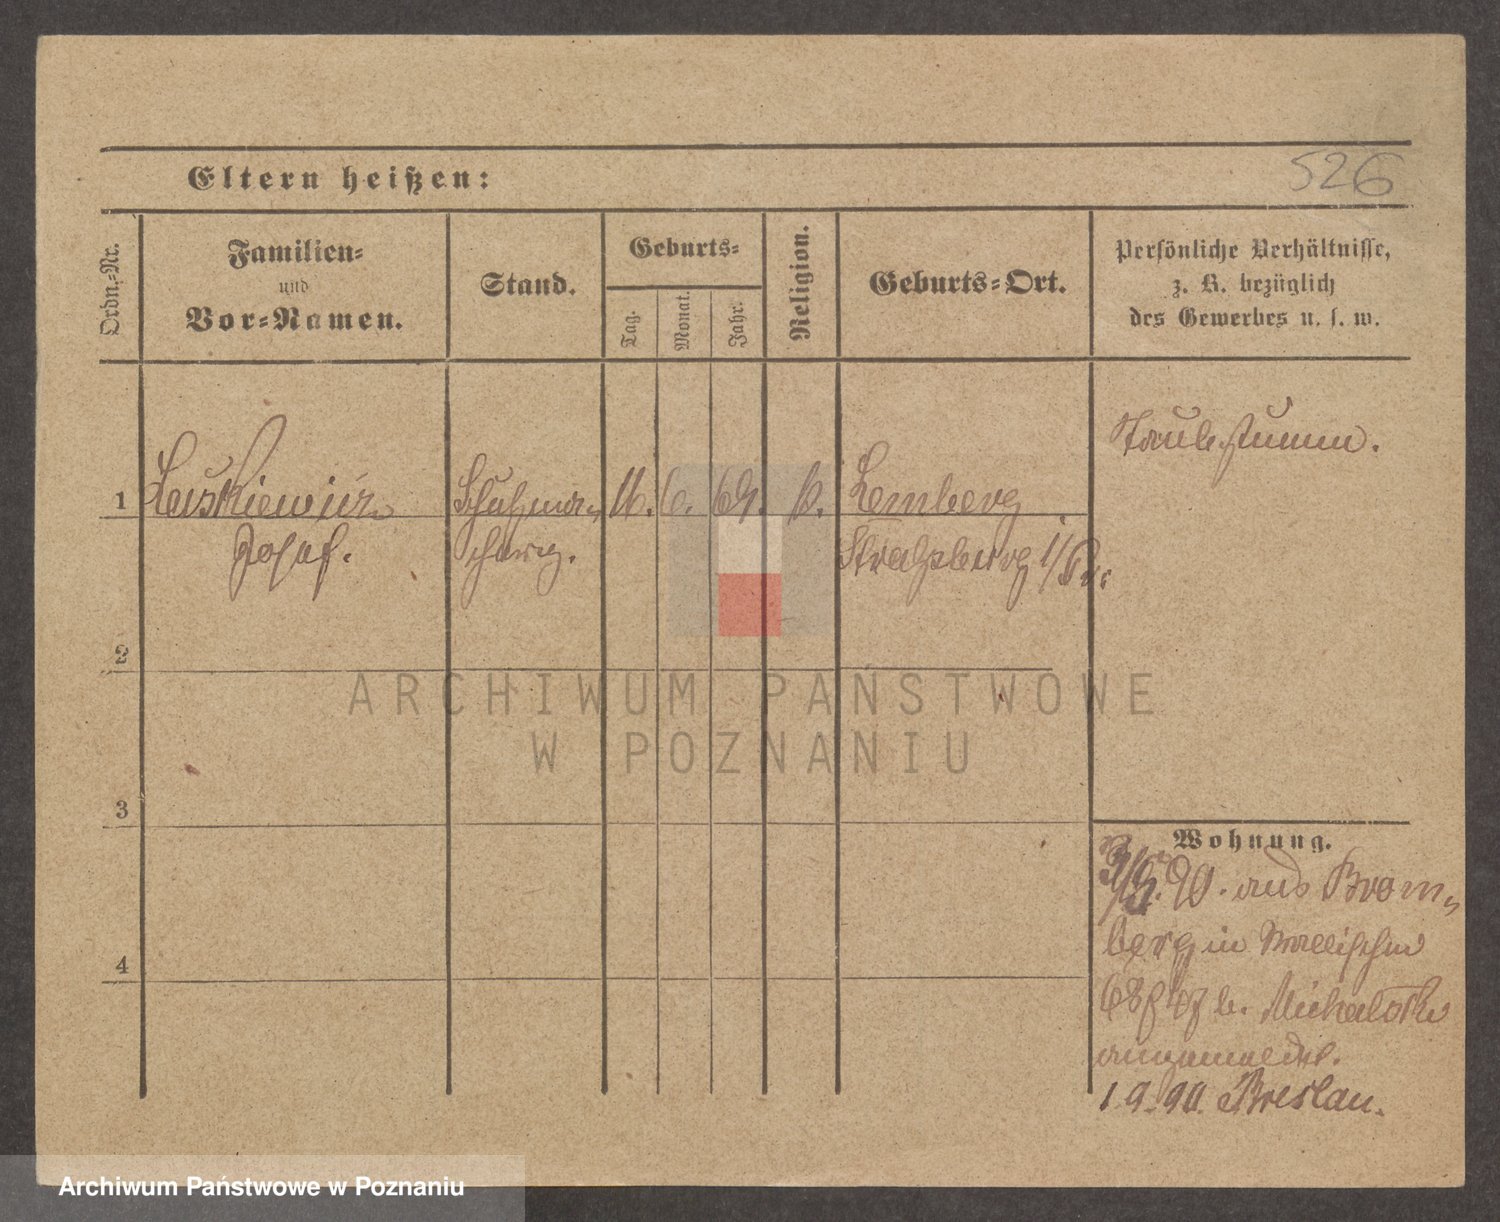 526
Eltern heißen:
Ordn.-Nr.
Familien-
und
Vor-Namen.
Stand.
Geburts-
Tag.
Monat.
Jahr.
Religion.
Geburts-Ort.
Persönliche Verhältnisse,
z. B. bezüglich
des Gewerbes u. s. w.
Taubstumm.
1
Josef.
Schuhma-
cherg.
16. 6. 69. k.
Lemberg
Straßburg
2
3
4
Wohnung.
90. aus Brom-
berg in Wallischei
68 b.
angemeldet.
1.9.90. Breslau.
ARCHIWUM PAŃSTWOWE
W POZNANIU
Archiwum Państwowe w Poznaniu